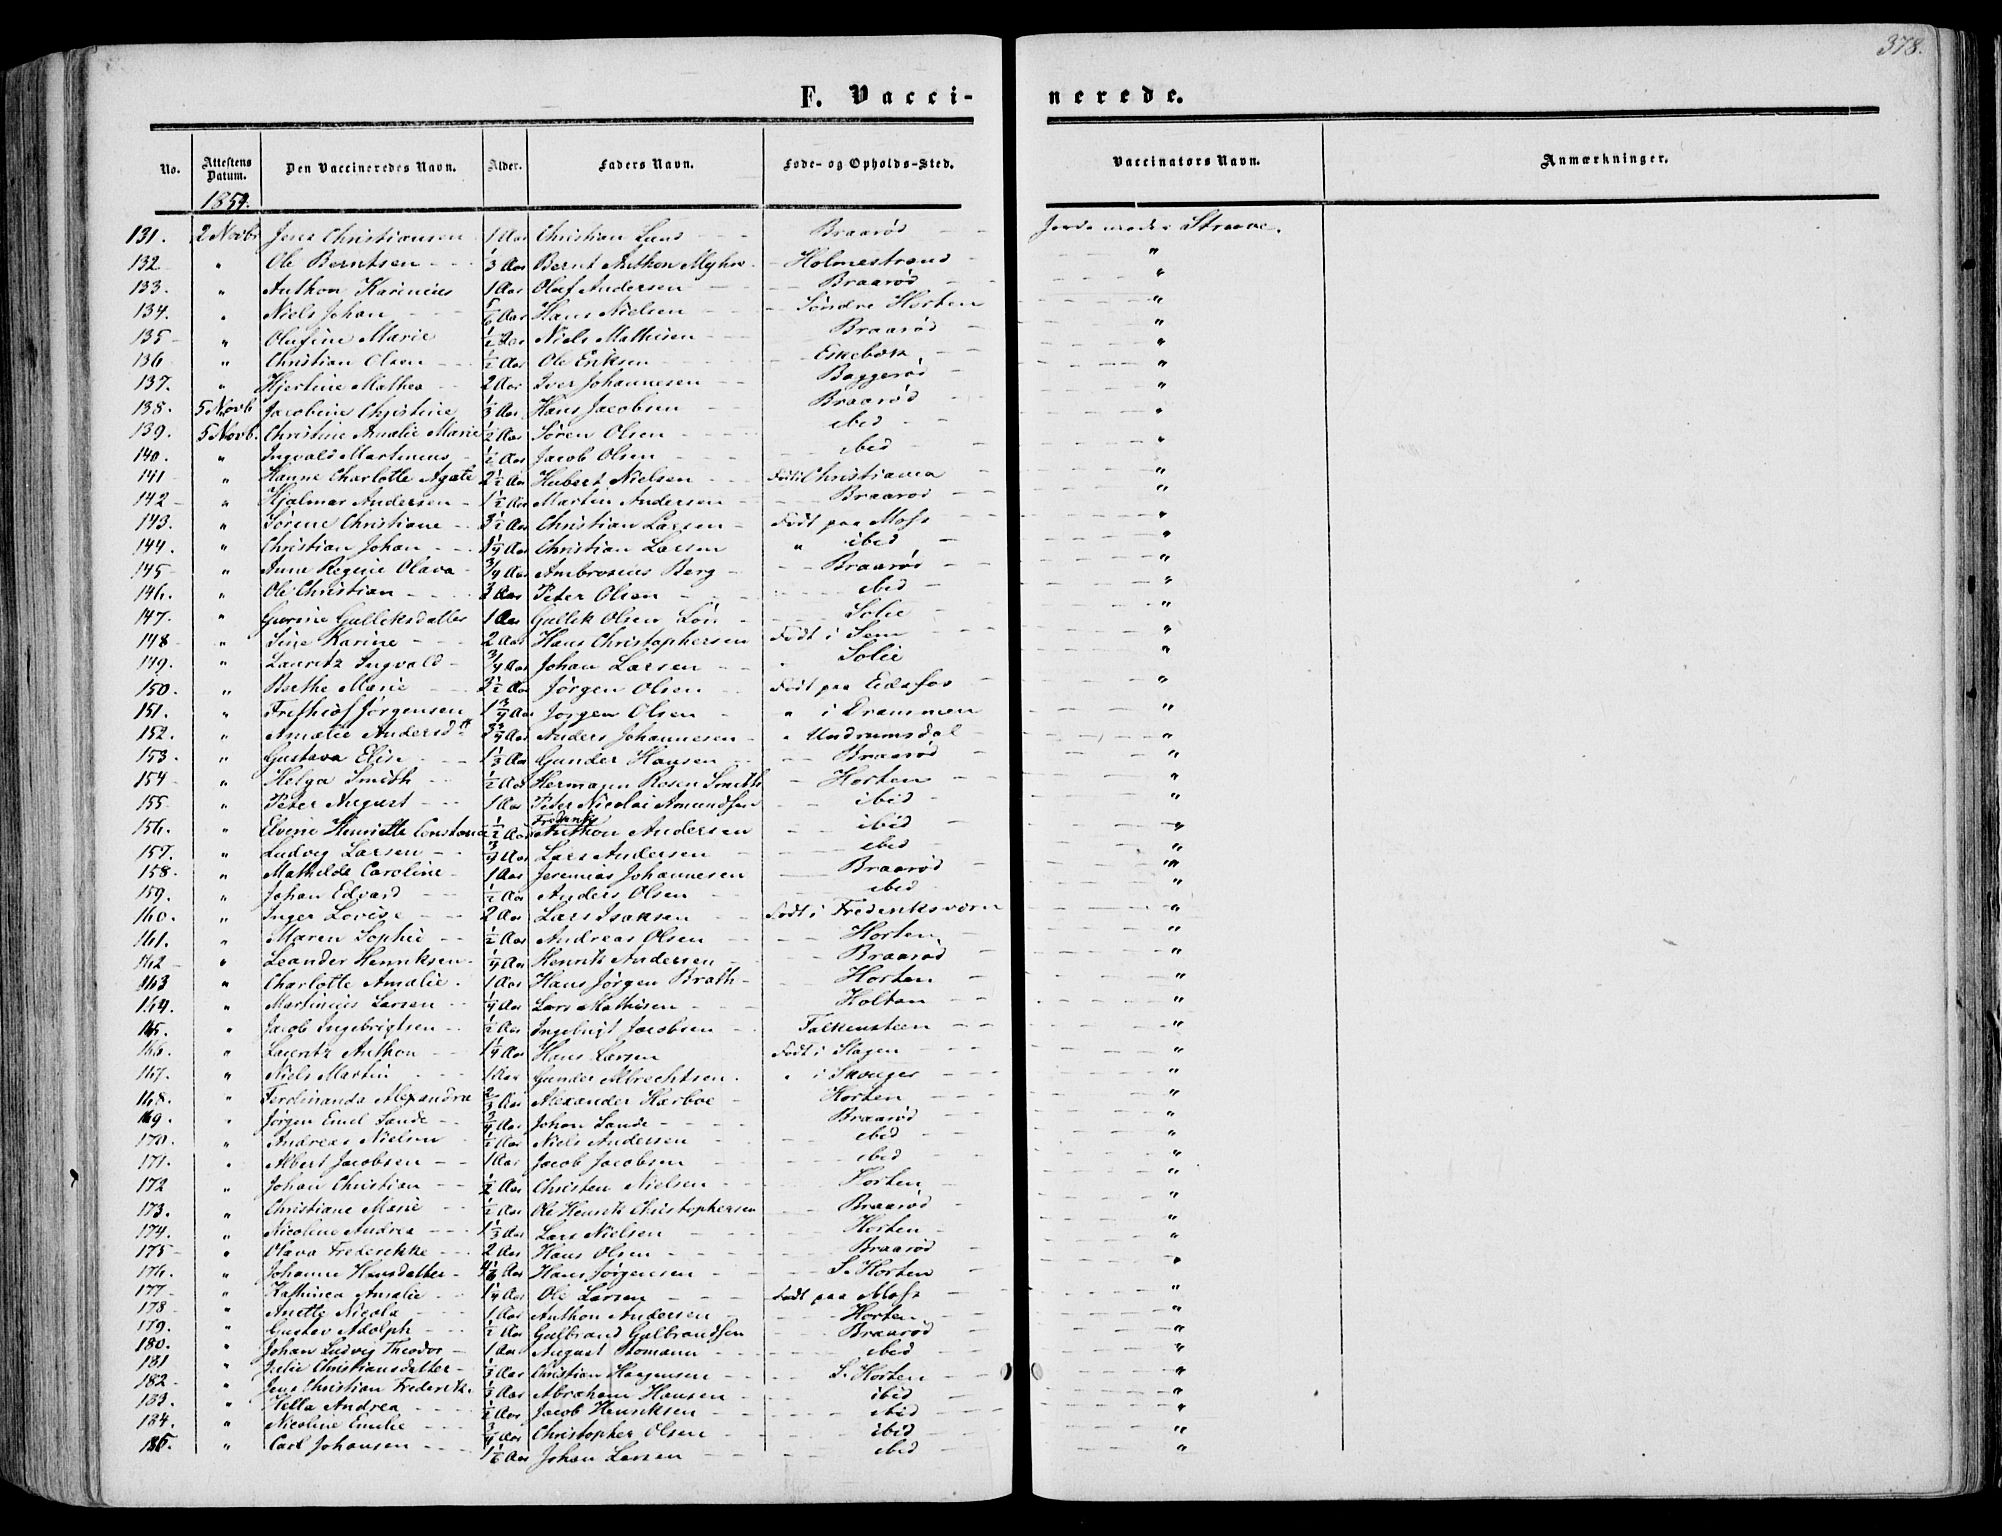 378.
F. Vacci-nerede.
No. Attestens Datum. Den Vaccineredes Navn. Alder. Faders Navn. Føde- og Opholds-Sted. Vaccinators Navn. Anmærkninger.
1854.
131. 2 Novb. Jens Christiansen 1 Aar Christian Lund Braarød Jordemoder Struve.
132 " Ole Berntsen 1/3 Aar Bernt Anthon Myhre Holmestrand "
133. " Anthon Karinius 1 Aar Oluf Andersen Braarød "
134. " Niels Johan 5/6 Aar Hans Nielsen Søndre Horten "
135 " Olufine Marie 1/2 Aar Niels Mathisen Braarød "
136 " Christian Olsen 1/2 Aar Ole Eriksen Eskebæk "
137. " Hjertine Mathea 2 Aar Iver Johannesen Baggerød "
138. 5 Novb Jacobine Christine 1/3 Aar Hans Jacobsen Braarød "
139. 5 Novb. Christine Amalie Marie 1/2 Aar Søren Olsen ibid "
140. " Ingvald Martinius 1/2 Aar Jacob Olsen ibid "
141 " Hanne Charlotte Agate 2 1/2 Aar Hubert Nielsen Født i Christiania "
142 " Hjalmar Andersen 1 1/2 Aar Martin Andersen Braarød "
143. " Sørene Christiane 3 1/2 Aar Christian Larsen Født paa Moss "
144. " Christian Johan 1 1/4 Aar Christian Larsen " ibid "
145 " Anne Regine Olava 3/4 Aar Ambrosius Berg Braarød "
146. " Ole Christian 3 Aar Peter Olsen ibid "
147. " Gurine Gulleksdatter 1 Aar Gullik Olsen Solie "
148 " Sine Karine 2 Aar Hans Christophersen Født i Sem "
149. " Lauritz Ingvald 3/4 Aar Johan Larsen Solie "
150. " Berthe Marie 3 1/2 Aar Jørgen Olsen Født paa Eidsfos "
151. " Frithiof Jørgensen 1 3/4 Aar Jørgen Olsen " i Drammen "
152. " Amalie Andersdtr 3 3/4 Aar Anders Johannesen " Undrumsdal "
153. " Gustava Elise 1/3 Aar Gunder Hansen Braarød "
154 " Helga Smith 1/2 Aar Hermann Rosen Smith Horten "
155 " Peter August 1 Aar Peter Nicolai Amundsen ibid "
156. " Elvine Henriette Constance 1/2 Aar Frederik Anthon Andersen ibid "
157. " Ludvig Larsen 3/4 Aar Lars Andersen ibid "
158. " Mathilde Caroline 1 Aar Jeremias Johannesen Braarød "
159. " Johan Edvard 1/2 Aar Anders Olsen ibid "
160. " Inger Lovise 2 Aar Lars Isaksen Født i Frederiksværn "
161. " Maren Sophie 1/2 Aar Andreas Olsen Horten "
162 " Leander Henriksen 1/4 Aar Henrik Andersen Braarød "
163 " Charlotte Amalie 1 Aar Hans Jørgen Brath Horten "
164. " Martinius Larsen 1/4 Aar Lars Mathisen Holtan "
165. " Jacob Ingebrigtsen 1/2 Aar Ingebrigt Jacobsen Falkensteen "
166. " Lauritz Anthon 1 1/4 Aar Hans Larsen Født i Slagen "
167. " Niels Martin 1 Aar Gunder Albrechtsen " i Skouger "
168. " Ferdinanda Alexandra 2/3 Aar Alexander Harboe Horten "
169. " Jørgen Emil Sande 3/4 Aar Johan Sande Braarød "
170. " Andreas Nielsen 1/2 Aar Niels Andersen ibid "
171. " Albert Jacobsen 1 Aar Jacob Jacobsen ibid "
172 " Johan Christian 1/2 Aar Christen Nielsen Horten "
173. " Christiane Marie 1/2 Aar Ole Henrik Christophersen Braarød "
174. " Nicoline Andrea 1 1/3 Aar Lars Nielsen Horten "
175 " Olava Frederikke 2 Aar Hans Olsen Braarød "
176. " Johanne Hansdatter Aar Hans Jørgensen S. Horten "
177 " Kathinca Amalie 1 1/4 Aar Ole Larsen Født paa Moss "
178 " Anette Nicola 1 Aar Anthon Andersen Horten "
179. " Gustav Adolph 1/2 Aar Gulbrand Gulbrandsen Braarød "
180. " Johan Ludvig Theodor 1 Aar August Bomann ibid "
181 " Julie Christiansdatter 1/3 Aar Christian Haagensen S. Horten "
182 " Jens Christian Frederik 1/3 Aar Abraham Hansen ibid "
183. " Hella Andrea 1/2 Aar Jacob Henriksen ibid "
184. " Nicoline Emilie 3/4 Aar Christopher Olsen ibid "
185. " Carl Johansen 1 1/6 Aar Johan Larsen ibid "